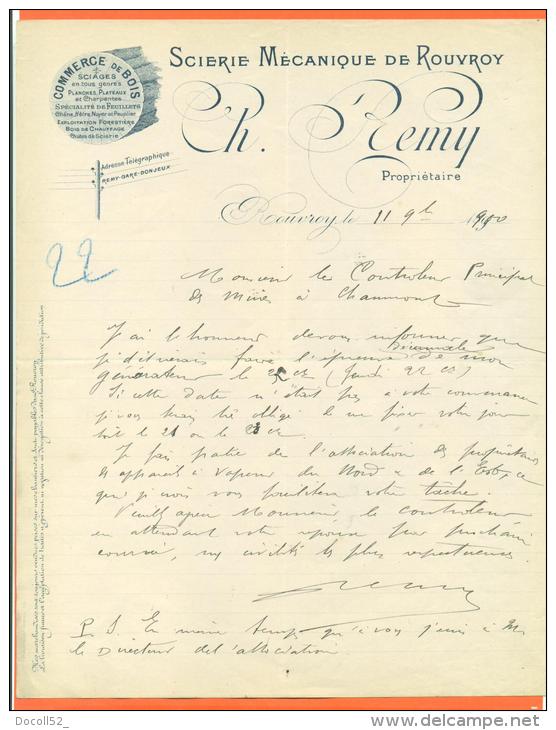 COMMERCE DE BOIS
SCIAGES
en tous genres
PLANCHES, PLATEAUX
et Charpentes
SPÉCIALITÉ DE FEUILLETS
Chêne, Hêtre, Noyer et Peuplier
EXPLOITATION FORESTIÈRE
BOIS DE CHAUFFAGE
Chutes de Scierie
Adresse Télégraphique
REMY-GARE-DONJEUX
SCIERIE MÉCANIQUE DE ROUVROY
Ch. Remy
Propriétaire
Rouvroy le 11 9bre 1900
22
Monsieur le Controleur Principal
des Mines à Chaumont
J'ai l'honneur de vous informer que
je désirerais faire l'épreuve décennale de mon
générateur le 22 ct (Jeudi 22 ct)
Si cette date n'était pas à votre convenance
je vous serais très obligé de me fixer votre jour
soit le 21 ou le ct
Je fais partie de l'association des propriétaires
d'appareils à vapeur du Nord & de l'Est, ce
que je crois vous facilitera votre tâche.
Veuillez agréer Monsieur le controleur
en attendant votre réponse par prochain
courrier, mes civilités les plus respectueuses.
Remy
P. S. En même temps qu'à vous j'écris à Mr
le Directeur de l'association
Docoll52_
delcampe.net